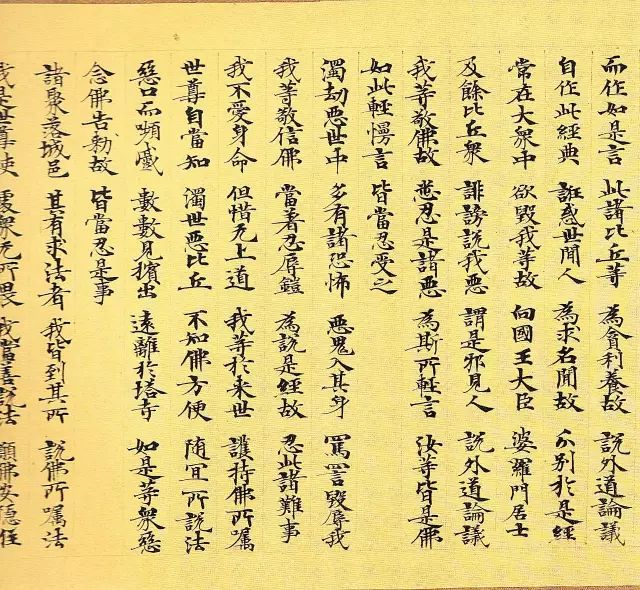 而作如是言 此諸比丘等 為貪利養故 說外道論議
自作此經典 誑惑世間人 為求名聞故 分別於是經
常在大衆中 欲毀我等故 向國王大臣 婆羅門居士
及餘比丘衆 誹謗說我惡 謂是邪見人 說外道論議
我等敬佛故 悉忍是諸惡 為斯所輕言 汝等皆是佛
如此輕慢言 皆當忍受之
濁劫惡世中 多有諸恐怖 惡鬼入其身 罵詈毀辱我
我等敬信佛 當著忍辱鎧 為說是經故 忍此諸難事
我不愛身命 但惜无上道 我等於来世 護持佛所嘱
世尊自當知 濁世惡比丘 不知佛方便 随宜所說法
惡口而嚬蹙 數數見擯出 遠離於塔寺 如是等衆惡
念佛告勅故 皆當忍是事
諸聚落城邑 其有求法者 我皆到其所 說佛所嘱法
我是世尊使 處衆无所畏 我當善說法 願佛安隱住